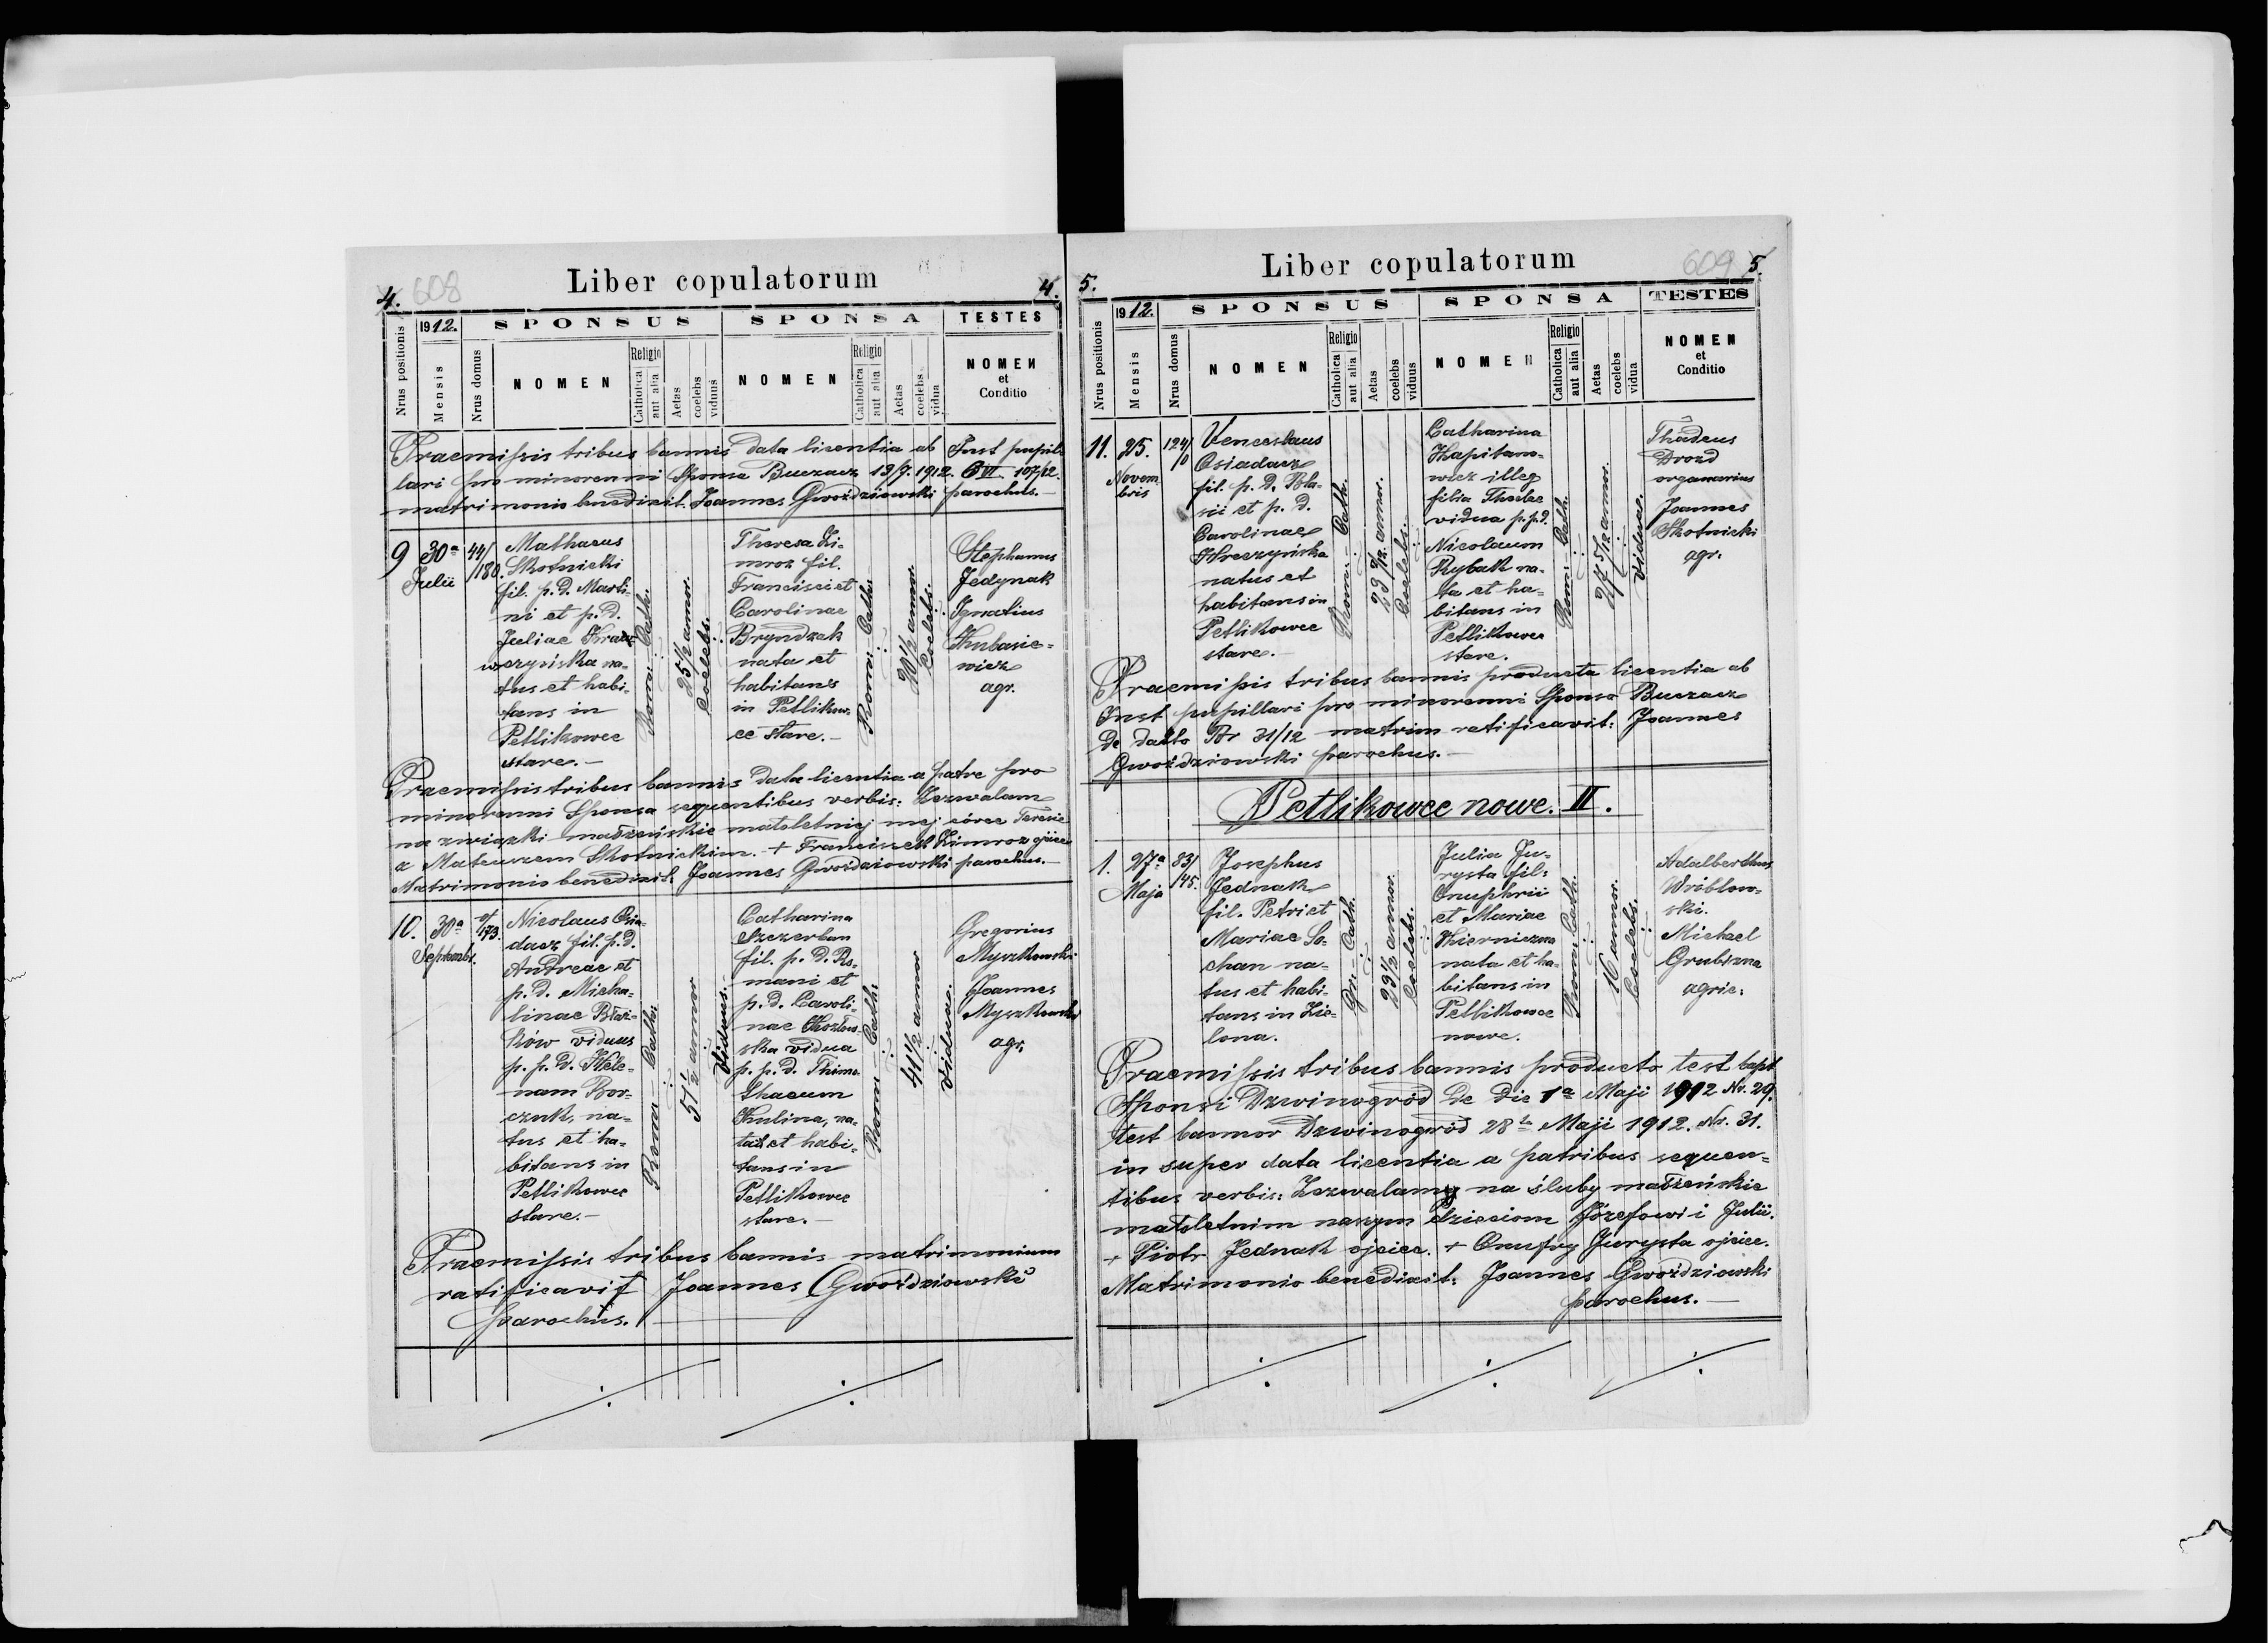 4. 608 Liber copulatorum 4.
Nrus positionis
1912.
Mensis
Nrus domus
SPONSUS
NOMEN
Religio
Catholica
aut alia
Aetas
coelebs
viduus
SPONSA
NOMEN
Religio
Catholica
aut alia
Aetas
coelebs
vidua
TESTES
NOMEN
et
Conditio
Praemissis tribus bannis data licentia ab Inst pupil-
lari pro minorenni Sponsa Buczacz 13/7. 1912. VI 107/12.
matrimonio benedixit Joannes Gwoździowski parochus.—
9
30a
Julii
44/
180.
Mathaeus
Skotnicki
fil. p. D. Marti-
ni et p. D.
Juliae Kraw
wczyńska na-
tus et habi-
tans in
Petlikowce
stare.—
Rom: Cath.
25 1/2 annor.
Coelebs.
Theresa Zi-
mroz fil.
Francisci et
Carolinae
Bryndzak
nata et
habitans
in Petlikow-
ce stare.—
Rom: Cath.
20 1/2 annor.
Coelebs.
Stephanus
Jedynak
Ignatius
Kubasie-
wicz
agr.
Praemissis tribus bannis data licentia a patre pro
minorenni Sponsa sequentibus verbis: Zezwalam
na związki małżeńskie małoletniej mej córce Teresie
z Mateuszem Skotnickim. + Franciszek Zimroz ojciec
Matrimonio benedixit: Joannes Gwoździowski parochus.—
10.
30a
Septembr.
173.
Nicolaus Osia-
dacz fil. p. D.
Andreae et
p. D. Micha-
linae Błaż-
ków viduus
p. p. D. Hele-
nam Bor-
czuk, na-
tus et ha-
bitans in
Petlikowce
stare.—
Rom: Cath.
51 1/2 annor
Viduus.
Catharina
Szczerban
fil. p. D. Ro-
mani et
p. D. Caroli-
nae
ska vidua
p. p. D. Thimo-
Kulina, na-
ta et habi-
tans in
Petlikowce
stare.—
Rom: Cath:
41 1/2 annor
Vidua.
Gregorius
Myszkowski
Joannes
Myszkowski
agr.
Praemissis tribus bannis matrimonium
ratificavit Joannes Gwoździowski
parochus.
5. Liber copulatorum 609 5.
Nrus positionis
1912.
Mensis
Nrus domus
SPONSUS
NOMEN
Religio
Catholica
aut alia
Aetas
coelebs
viduus
SPONSA
NOMEN
Religio
Catholica
aut alia
Aetas
coelebs
vidua
TESTES
NOMEN
et
Conditio
11.
25.
Novem
bris
124/
0
Venceslaus
Osiadacz
fil. p. D. Bla-
sii et p. D.
Carolinae
Hreczyńska
natus et
habitans in
Petlikowce
stare.—
Rom: Cath.
annor.
Coelebs.
Catharina
Kapitano-
wicz illeg
filia Theclae
vidua p. p. D.
Nicolaum
Rybak na-
ta et ha-
bitans in
Petlikowce
stare.
Rom: Cath.
5/12 annor.
Vidua.
Thadeus
Drozd
organarius
Joannes
Skotnicki
agr.
Praemissis tribus bannis producta licentia ab
Inst pupillari pro minorenni Sponso Buczacz
de datto Nr 31/12 matrim ratificavit: Joannes
Gwoździowski parochus.—
Petlikowce nowe. II.
1.
27a
Maja
83/
145.
Josephus
Jednak
fil. Petri et
Mariae So-
chan na-
tus et habi-
tans in Zie-
lona.
Gr: Cath.
23 1/2 annor.
Coelebs.
Julia Ju-
rysta fil:
Onuphrii
et Mariae
Kierniczna
nata et ha-
bitans in
Petlikowce
nowe.
Rom: Cath.
16 annor.
Coelebs.
Adalberthus
Wriblow-
ski.
Michael
Grubizna
agric:
Praemissis tribus bannis producto test bapt
Sponsi Dzwinogród de die 1a Maji 1912 Nr. 29.
test bannor Dzwinogród 28a Maji 1912. Nr. 31.
in super data licentia a patribus sequen-
tibus verbis: Zezwalamy na śluby małżeńskie
małoletnim naszym dzieciom Józefowi i Julii.
+ Piotr Jednak ojciec. + Onufry Jurysta ojciec.
Matrimonio benedixit: Joannes Gwoździowski
parochus.—